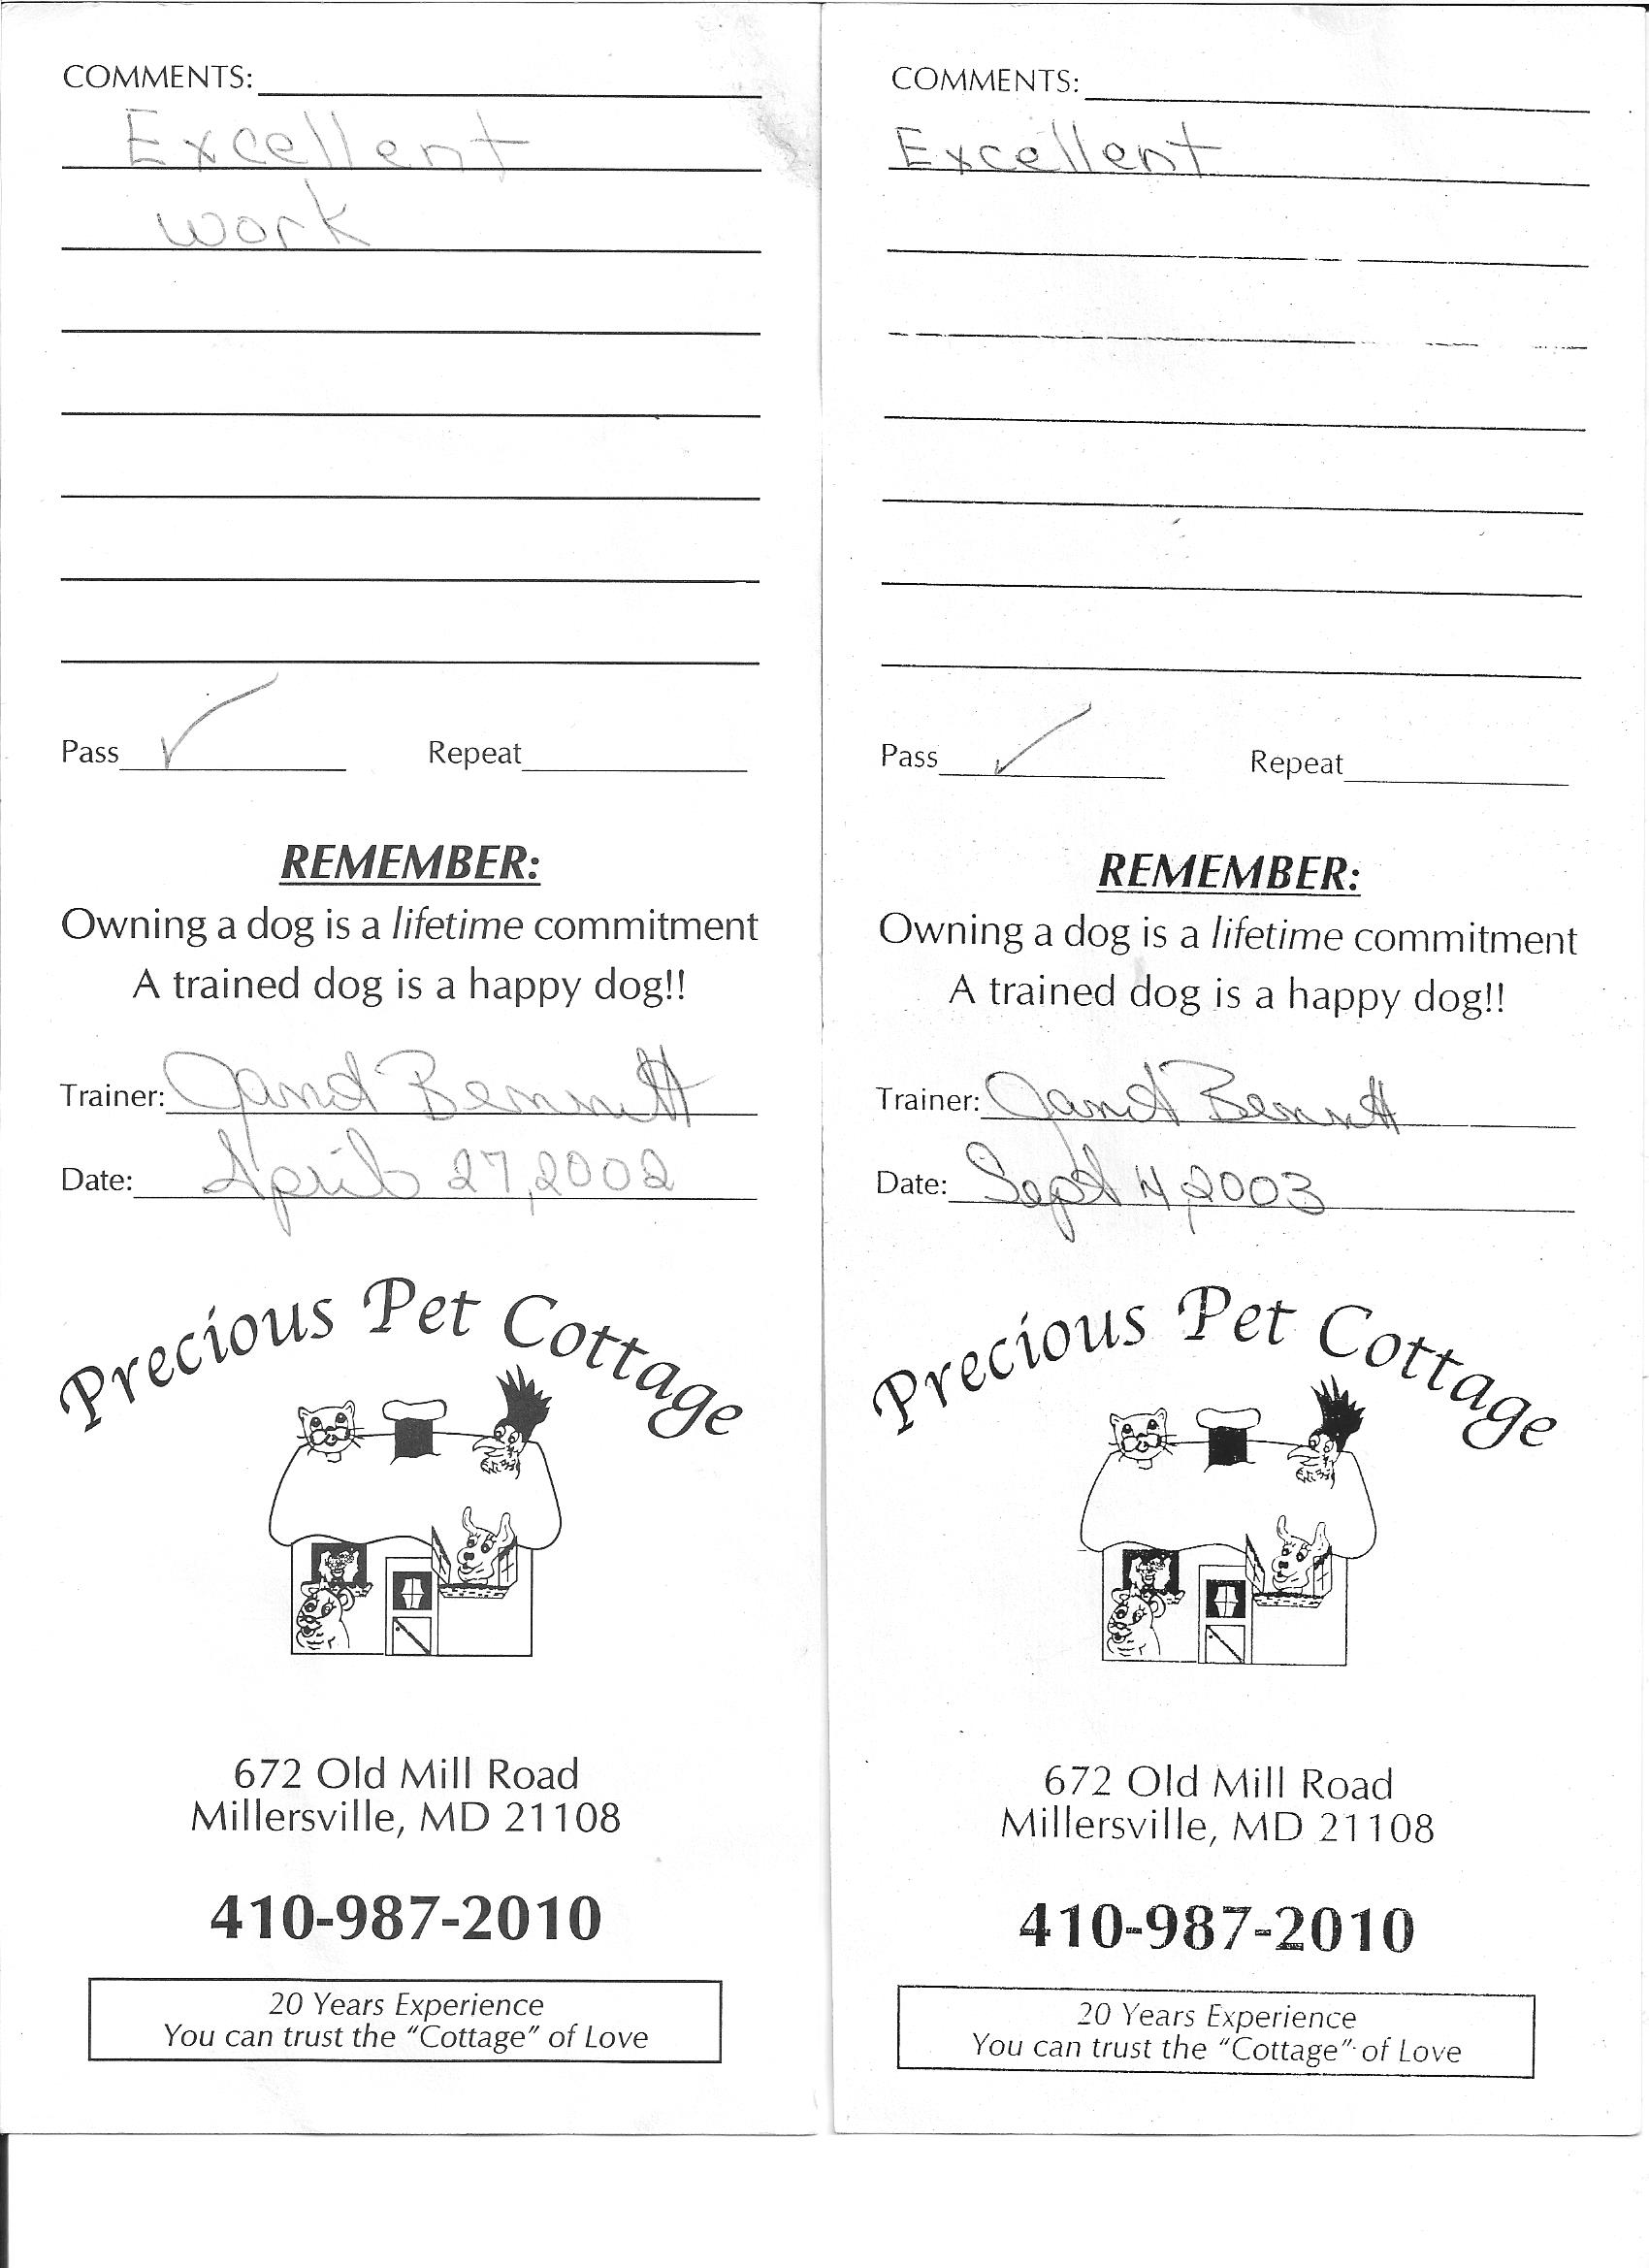 COMMENTS:
Excellent
work
Pass ✓ Repeat
REMEMBER:
Owning a dog is a lifetime commitment
A trained dog is a happy dog!!
Trainer: Janet Bennett
Date: April 27, 2002
Precious Pet Cottage
672 Old Mill Road
Millersville, MD 21108
410-987-2010
20 Years Experience
You can trust the “Cottage” of Love
COMMENTS:
Excellent
Pass ✓ Repeat
REMEMBER:
Owning a dog is a lifetime commitment
A trained dog is a happy dog!!
Trainer: Janet Bennett
Date: Sept 4, 2003
Precious Pet Cottage
672 Old Mill Road
Millersville, MD 21108
410-987-2010
20 Years Experience
You can trust the “Cottage” of Love